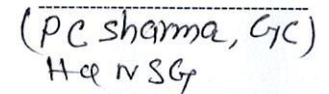 (PC Sharma, GC)
HQ NSG